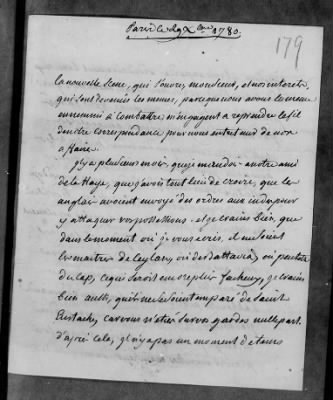 Paris le 29 Xbre 1780.
179
La nouvelle Scene, qui s'ouvre, monsieur, et nos interets,
qui sont devenus les memes, parceque nous avons le meme
ennemi a Combattre m'engagent a reprendre le fil
de notre correspondance pour nous entretenir de nos
affaire.
il y a plusieurs mois, que j'ai mandé a notre ami
de la Haye, que j'avois tout lieu de croire, que les
anglois avoient envoyé des ordres aux indes pour
y attaquer vos possessions. et je crains bien, que
dans le moment où je vous ecris, il ne soient
les maitres de Ceylan, ou de batavia, ou peutetre
du Cap, ce qui seroit encore plus facheux, je crains
bien aussi, qu'ils ne se soient emparé de Saint
Eustache, car vous n'etiés sur vos gardes nulle part.
d'après cela, il n'y a pas un moment de tems